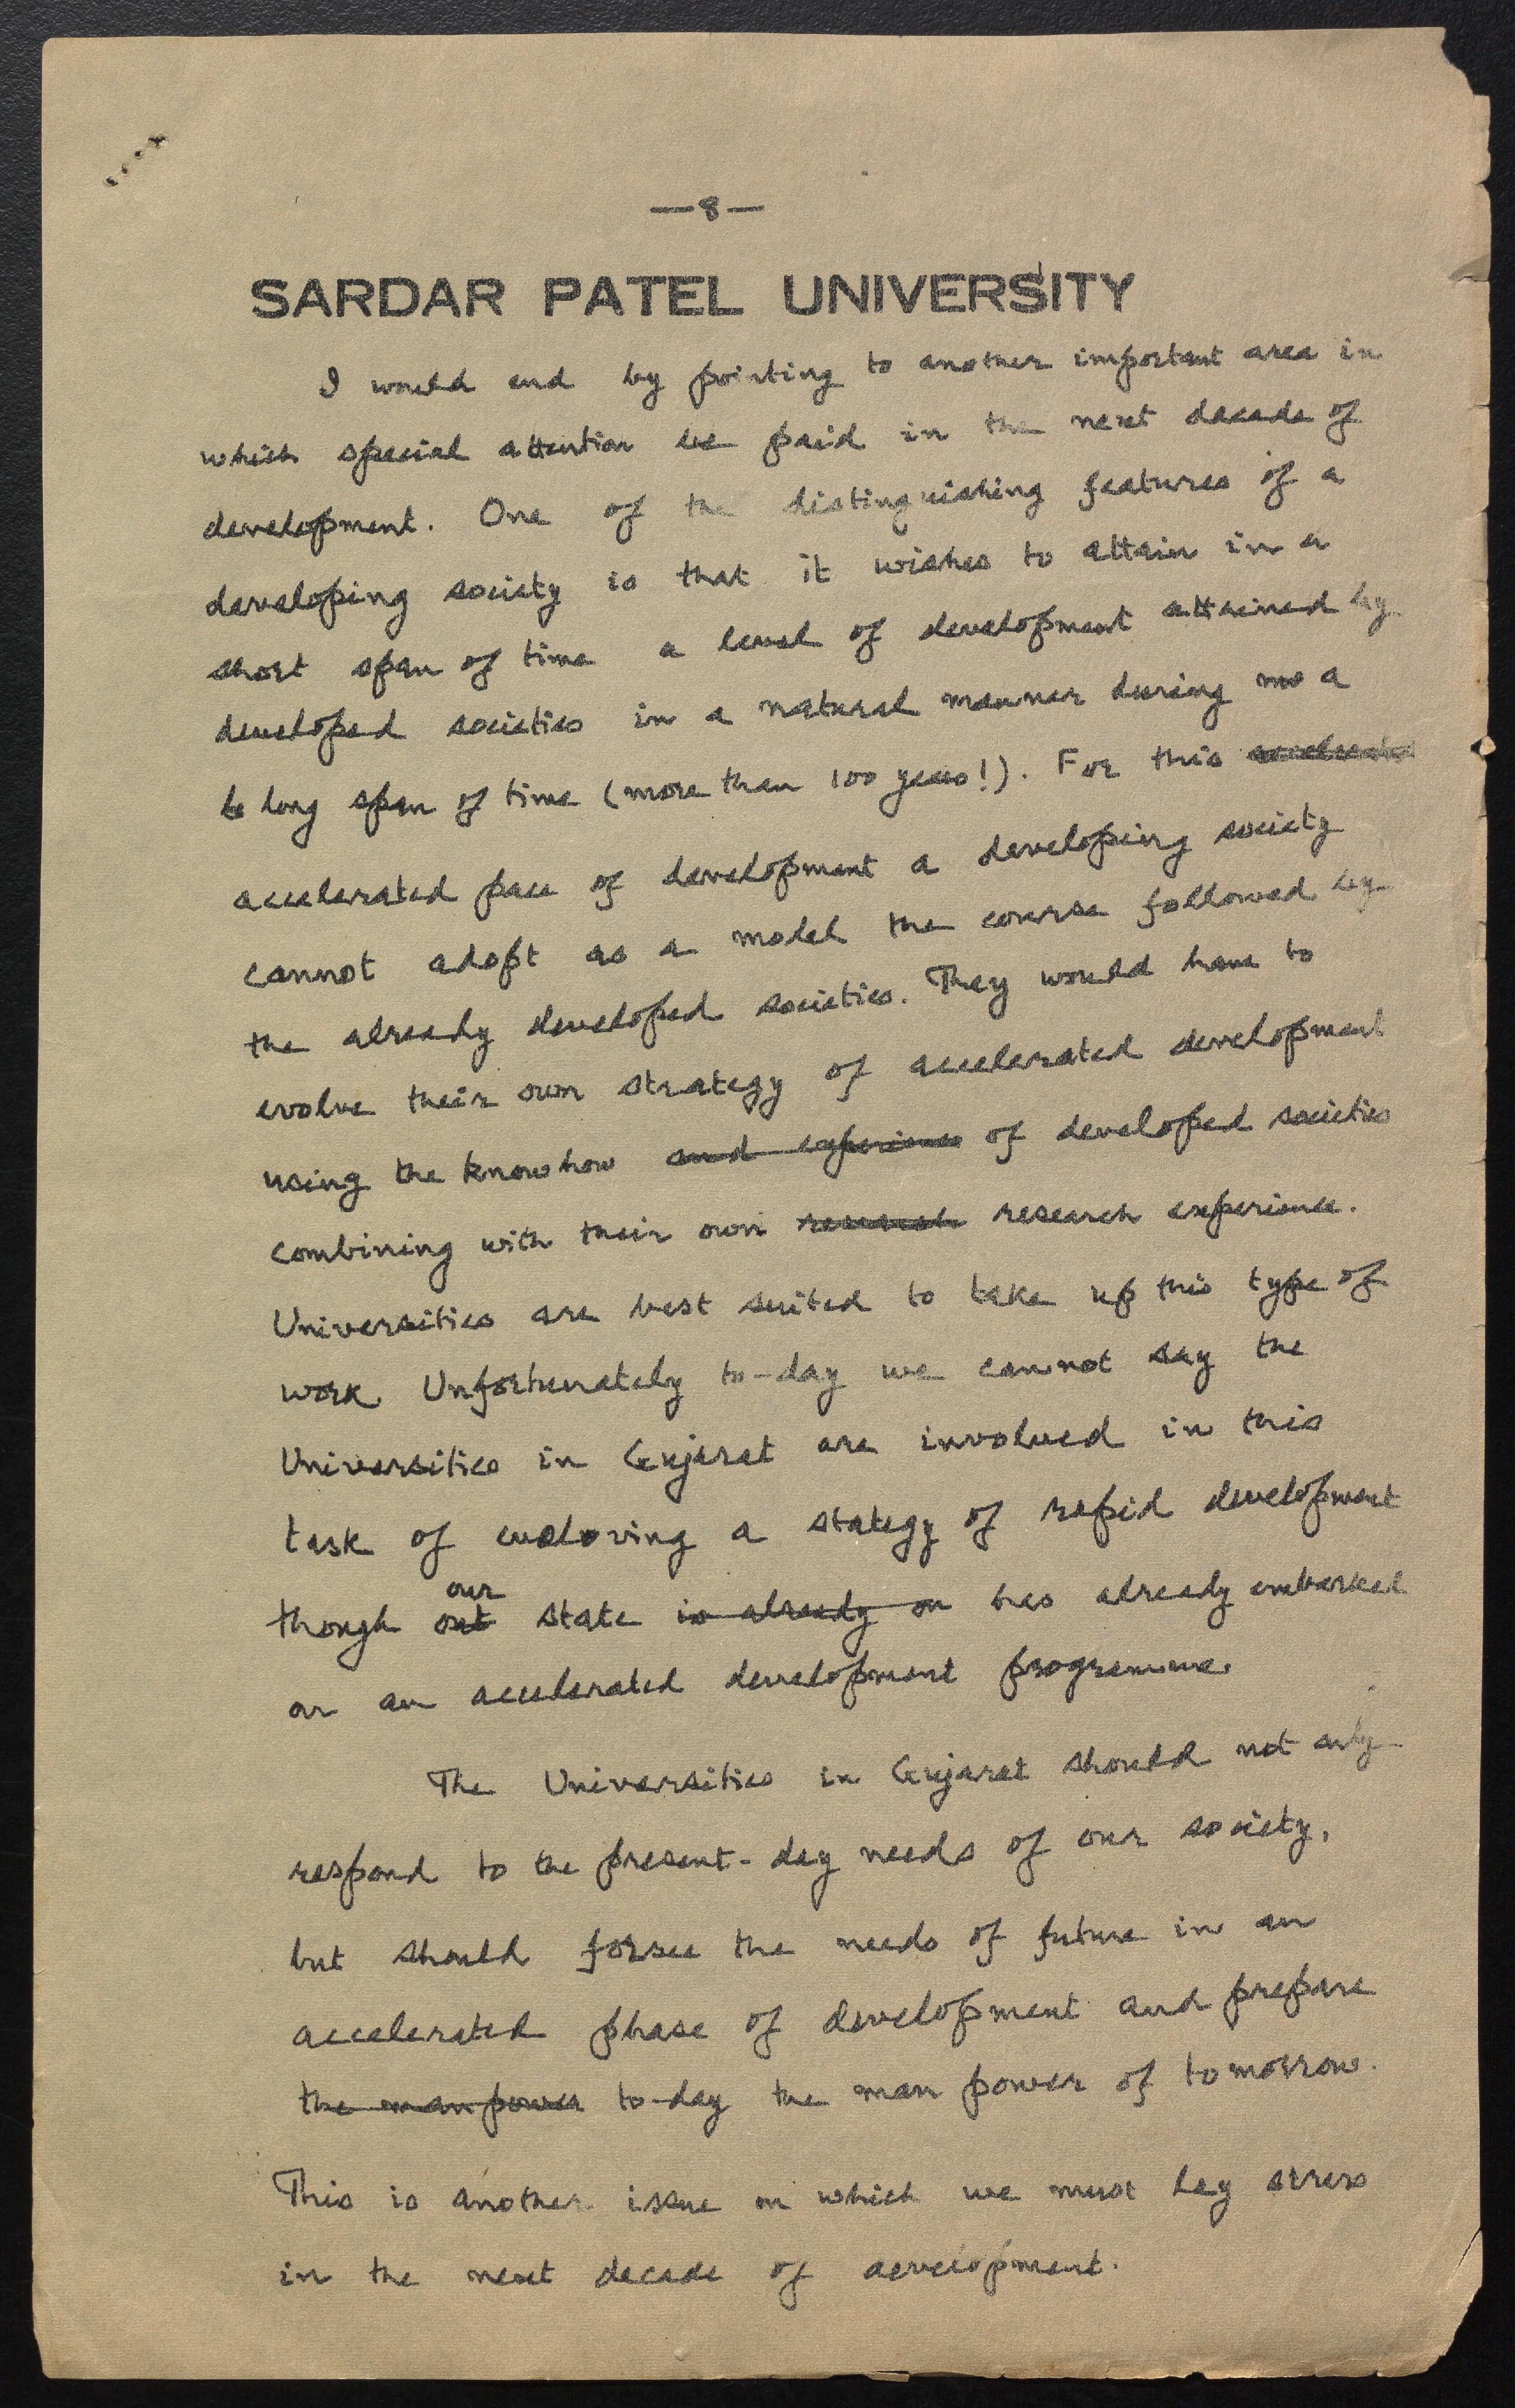 —8—
SARDAR PATEL UNIVERSITY
I would end by pointing to another important area in
which special attention be paid in the next decade of
development. One of the distinguishing features of a
developing society is that it wishes to attain in a
short span of time a level of development attained by
developed societies in a natural manner during a
long span of time (more than 100 years!). For this
accelerated pace of development a developing society
cannot adopt as a model the course followed by
the already developed societies. They would have to
evolve their own strategy of accelerated development
using the knowhow and experience of developed societies
combining with their own research research experience.
Universities are best suited to take up this type of
work. Unfortunately to-day we cannot say the
Universities in Gujarat are involved in this
task of a stategy of rapid development
though out our state is already on has already embarked
on an accelerated development programme.
The Universities in Gujarat should not only
respond to the present-day needs of our society,
but should forsee the needs of future in an
accelerated phase of development and prepare
the man power to-day the man power of tomorrow.
This is another issue on which we must lay stress
in the next decade of development.